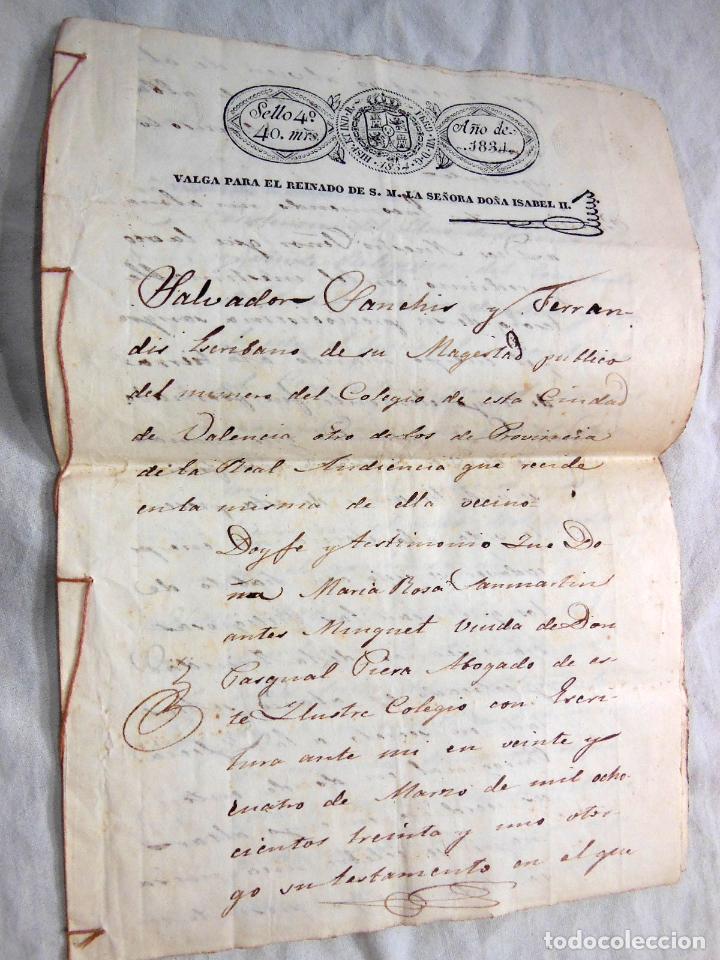 Sello 4º
40. mrs.
HISP. ET IND. R. FERD. VII. D. G. 1834
Año de
1834.
VALGA PARA EL REINADO DE S. M. LA SEÑORA DOÑA ISABEL II.
Salvador Sanchis y Ferran-
dis Escribano de su Magestad publico
del numero del Colegio de esta Ciudad
de Valencia otro de los de Provincia
de la Real Audiencia que recide
en la misma de ella vecino
Doy fe y testimonio Que Do-
ña Maria Rosa Sanmartin
antes Minguet Viuda de Don
Pasqual Piera Abogado de es-
te Ilustre Colegio con Escri-
tura ante mi en veinte y
cuatro de Marzo de mil ocho
cientos treinta y uno otor-
go su testamento en el que
todocoleccion
todocoleccion.net